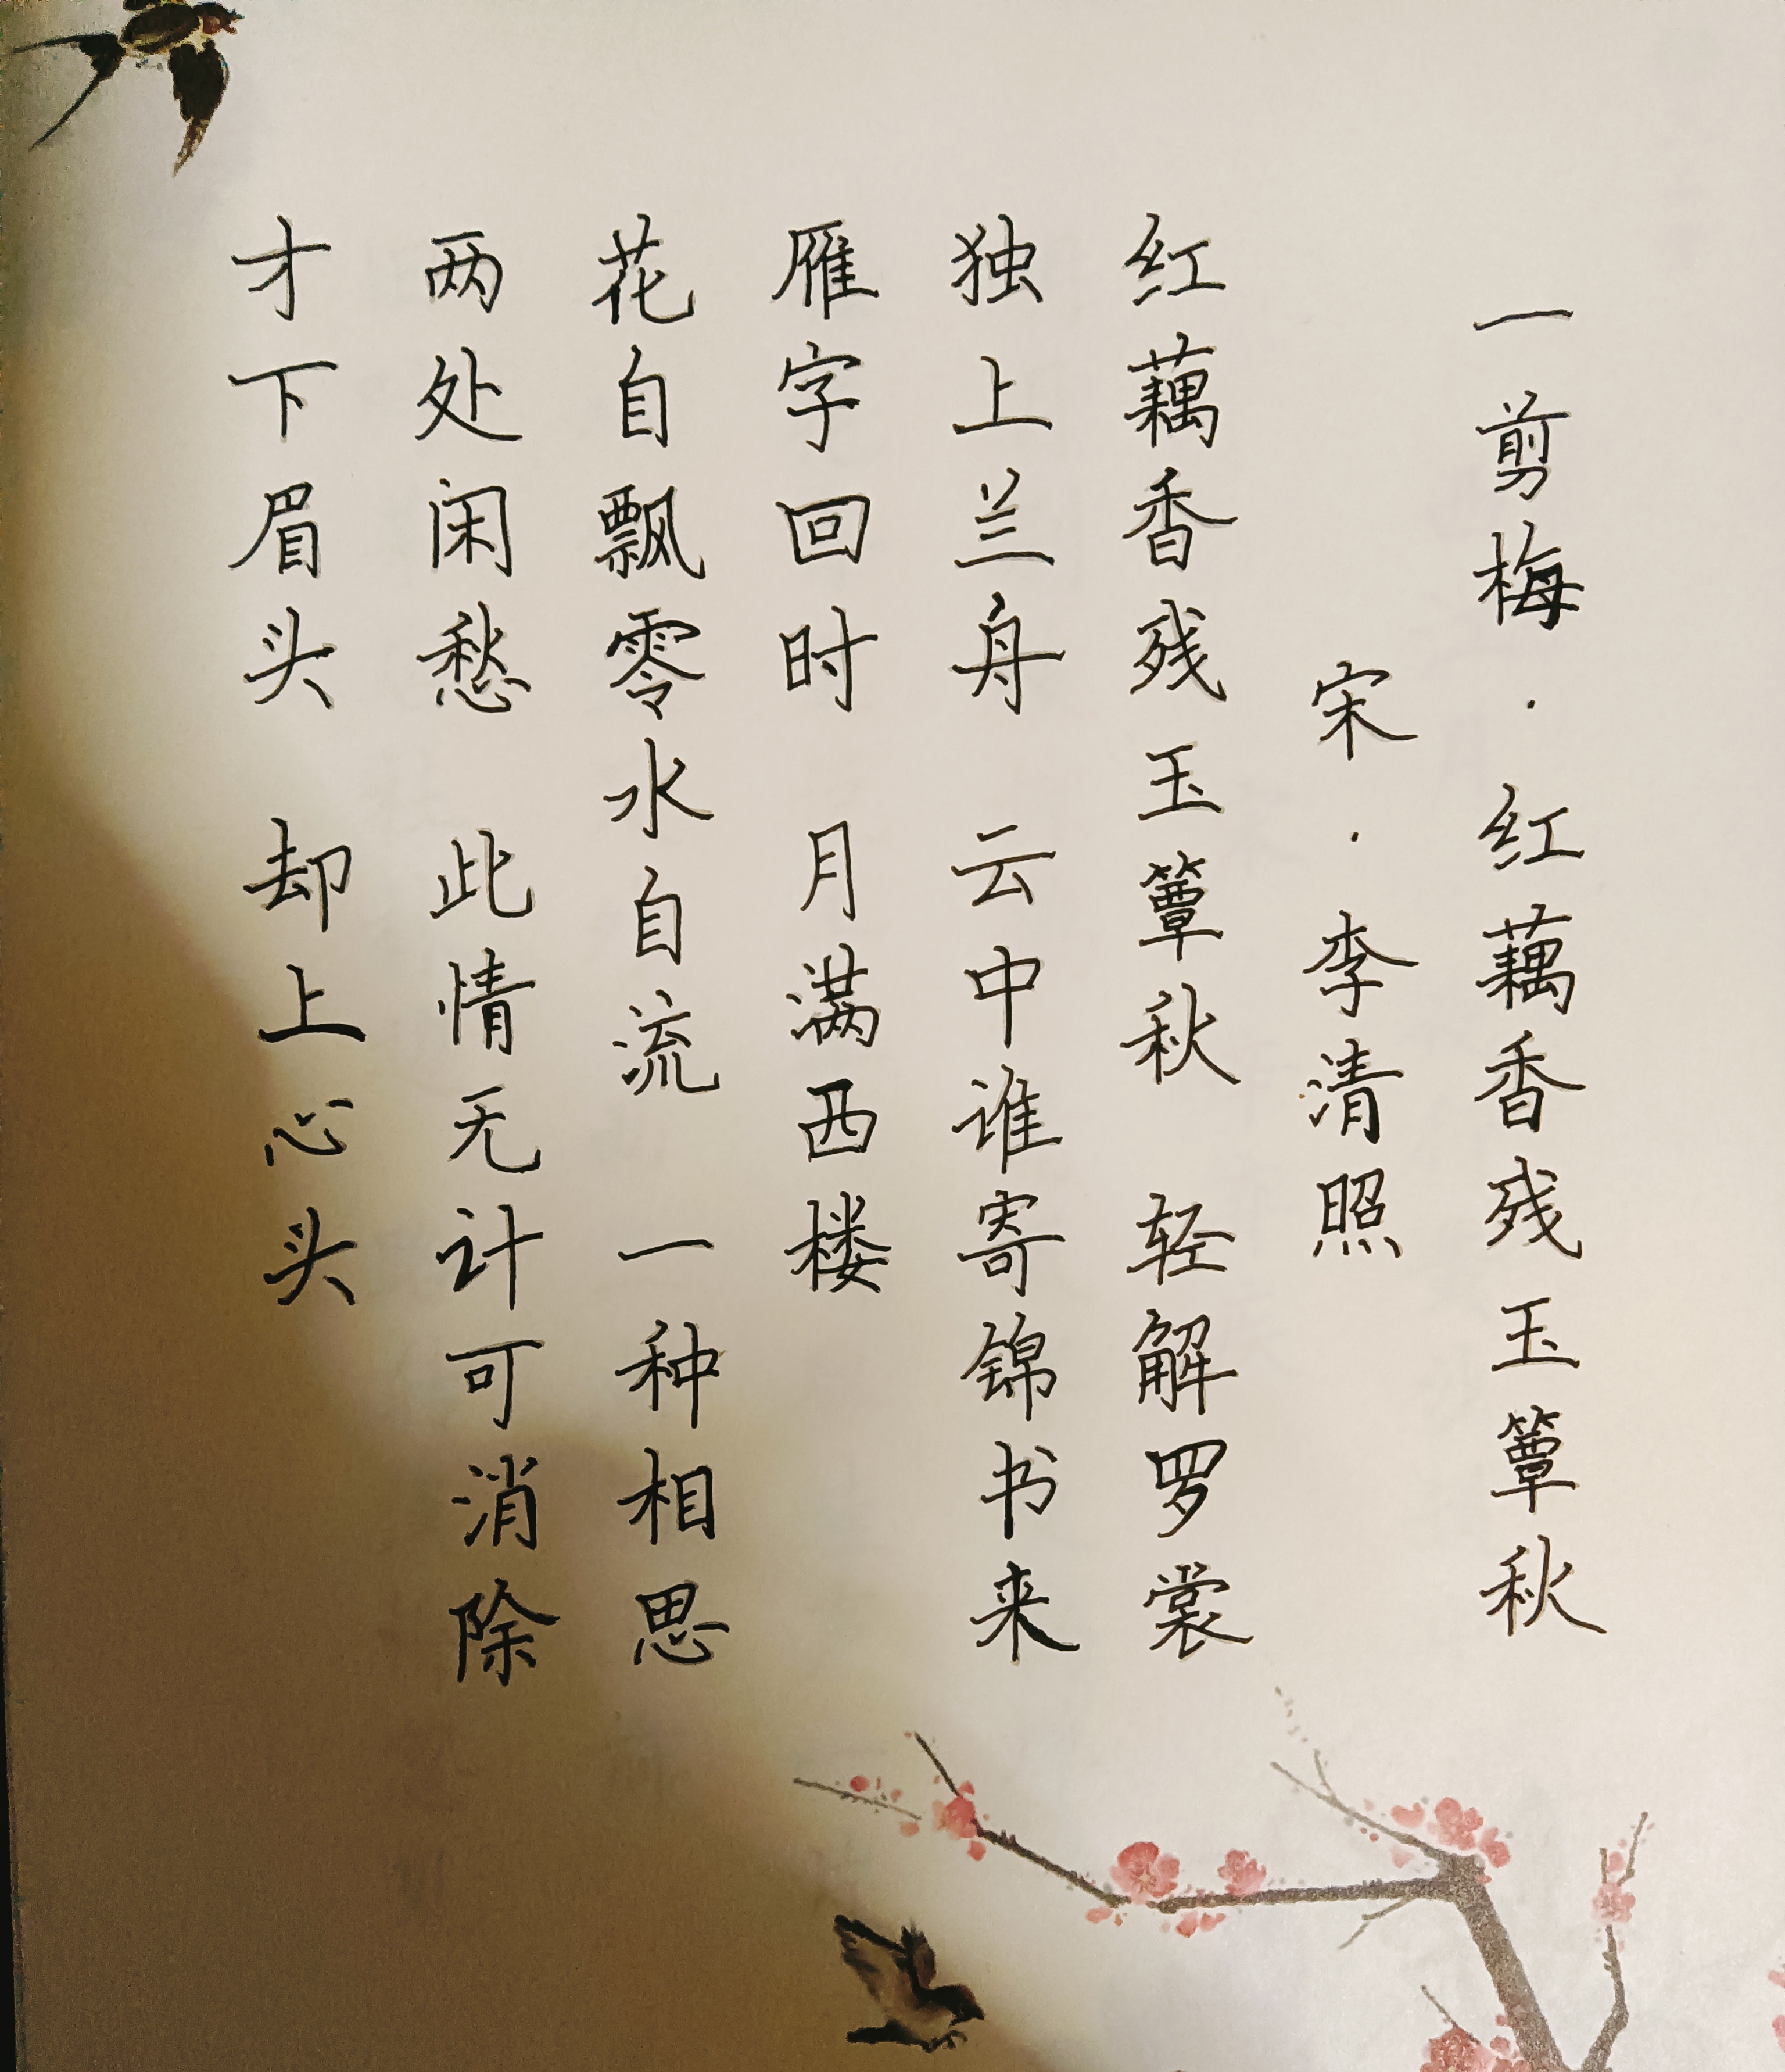 一剪梅·红藕香残玉簟秋
宋·李清照
红藕香残玉簟秋 轻解罗裳
独上兰舟 云中谁寄锦书来
雁字回时 月满西楼
花自飘零水自流 一种相思
两处闲愁 此情无计可消除
才下眉头 却上心头